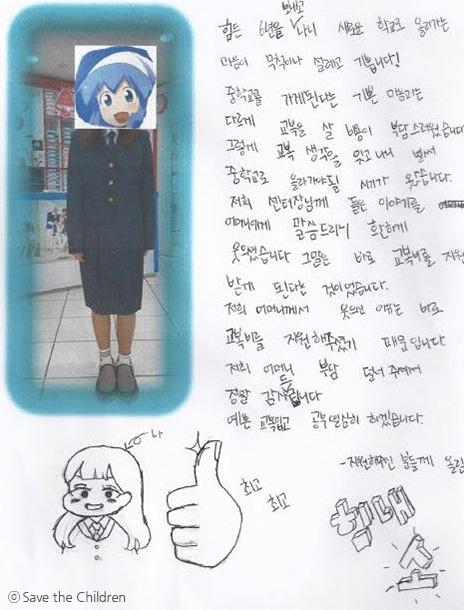 보내고
힘든 6년을 나니 새로운 학교로 올라가는
마음이 무척이나 설레고 기쁩니다!
중학교를 가게된다는 기쁜 마음과는
다르게 교복을 살 비용이 부담스러웠습니다
그렇게 교복 생각을 잊고 나니 벌써
중학교로 올라가야될 새가 왔습니다.
저희 센터장님께 들은 이야기를
어머니에게 말씀드리니 환하게
웃으셨습니다 그말은 바로 교복비를 지원
받게 된다는 것이었습니다.
저희 어머니께서 웃으신 이유는 바로
교복비를 지원해주셨기 때문입니다
저희 어머니 부담 덜어주셔서
정말 감사합니다
예쁜 교복입고 공부열심히 하겠습니다.
-지원해주신 분들께 올림
나
최고
최고
ⓒ Save the Children